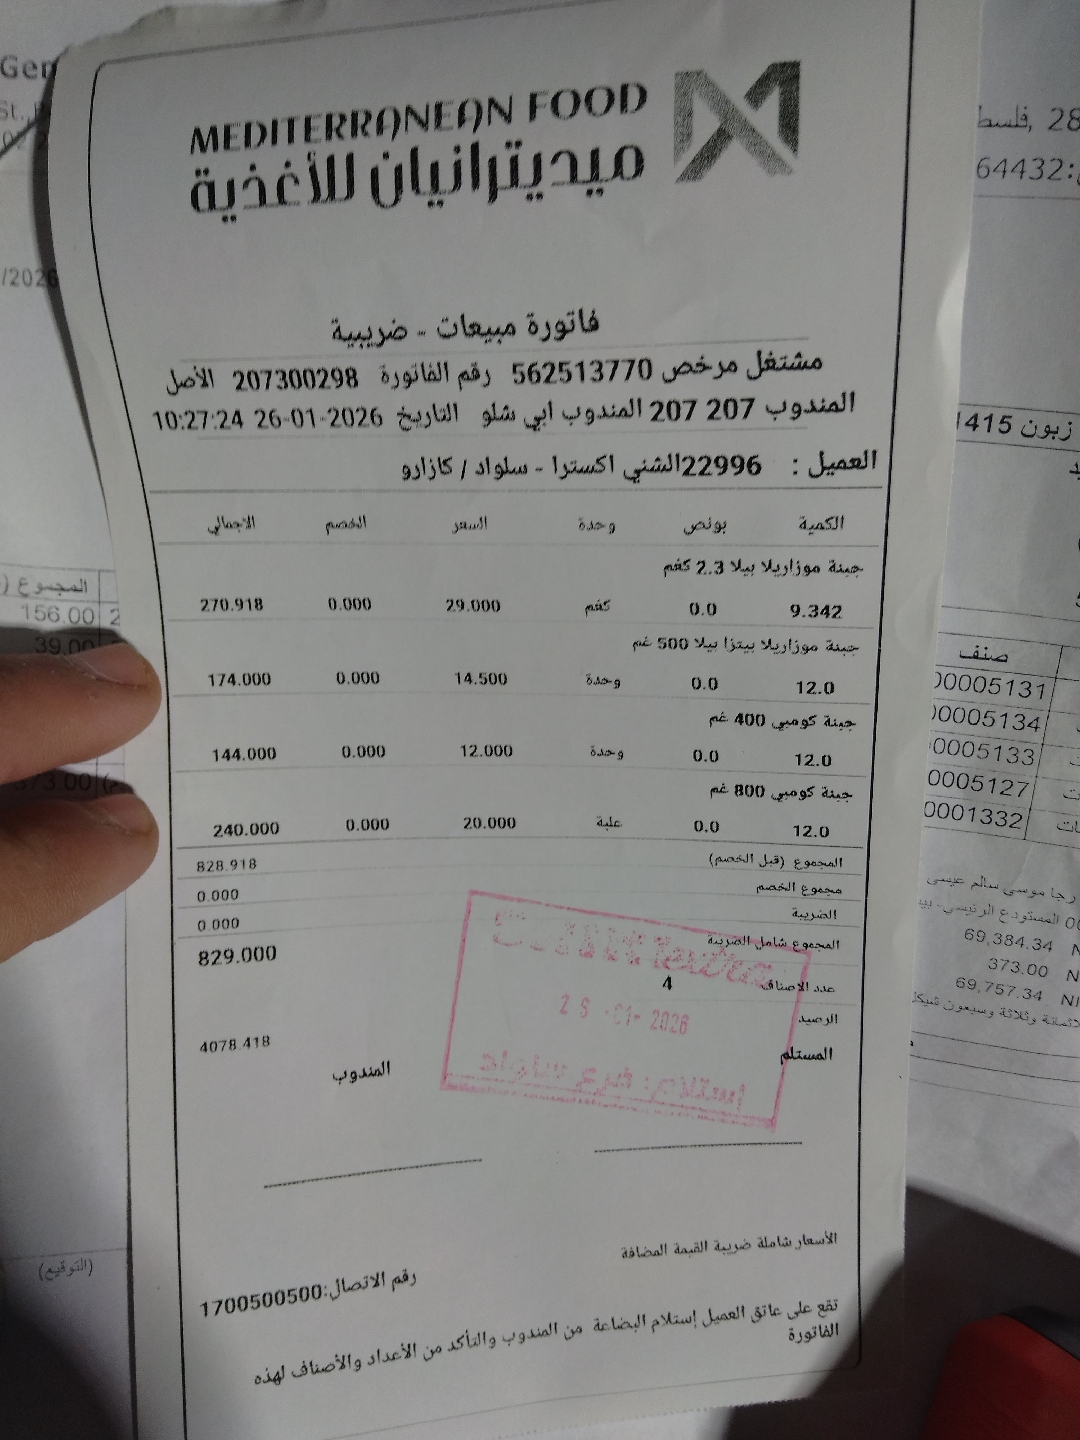 MEDITERRANEAN FOOD
ميديترانيان للأغذية
فاتورة مبيعات - ضريبية
مشتغل مرخص 562513770 رقم الفاتورة 207300298 الأصل
المندوب 207 207 المندوب ابي شلو التاريخ 26-01-2026 10:27:24
العميل : 22996الشني اكسترا - سلواد / كازارو
الكمية بونص وحدة السعر الخصم الاجمالي
جبنة موزاريلا بيلا 2.3 كغم
9.342 0.0 كغم 29.000 0.000 270.918
جبنة موزاريلا بيتزا بيلا 500 غم
12.0 0.0 وحدة 14.500 0.000 174.000
جبنة كومبي 400 غم
12.0 0.0 وحدة 12.000 0.000 144.000
جبنة كومبي 800 غم
12.0 0.0 علبة 20.000 0.000 240.000
المجموع (قبل الخصم) 828.918
مجموع الخصم 0.000
الضريبة 0.000
المجموع شامل الضريبة 829.000
عدد الاصناف 4
الرصيد 4078.418
المستلم المندوب
-01- 2026
الأسعار شاملة ضريبة القيمة المضافة
رقم الاتصال:1700500500
تقع على عاتق العميل إستلام البضاعة من المندوب والتأكد من الأعداد والأصناف لهذه
الفاتورة
Gen
St.,
/2026
المجموع
156.00
39.00
373.00
(التوقيع)
28, فلسط
64432:
زبون 1415
صنف
00005131
00005134
0005133
0005127
0001332
رجا موسى سالم عيسى
المستودع الرئيسي- بي
69,384.34
373.00
69,757.34
ثمانة وثلاثة وسبعون شيكل